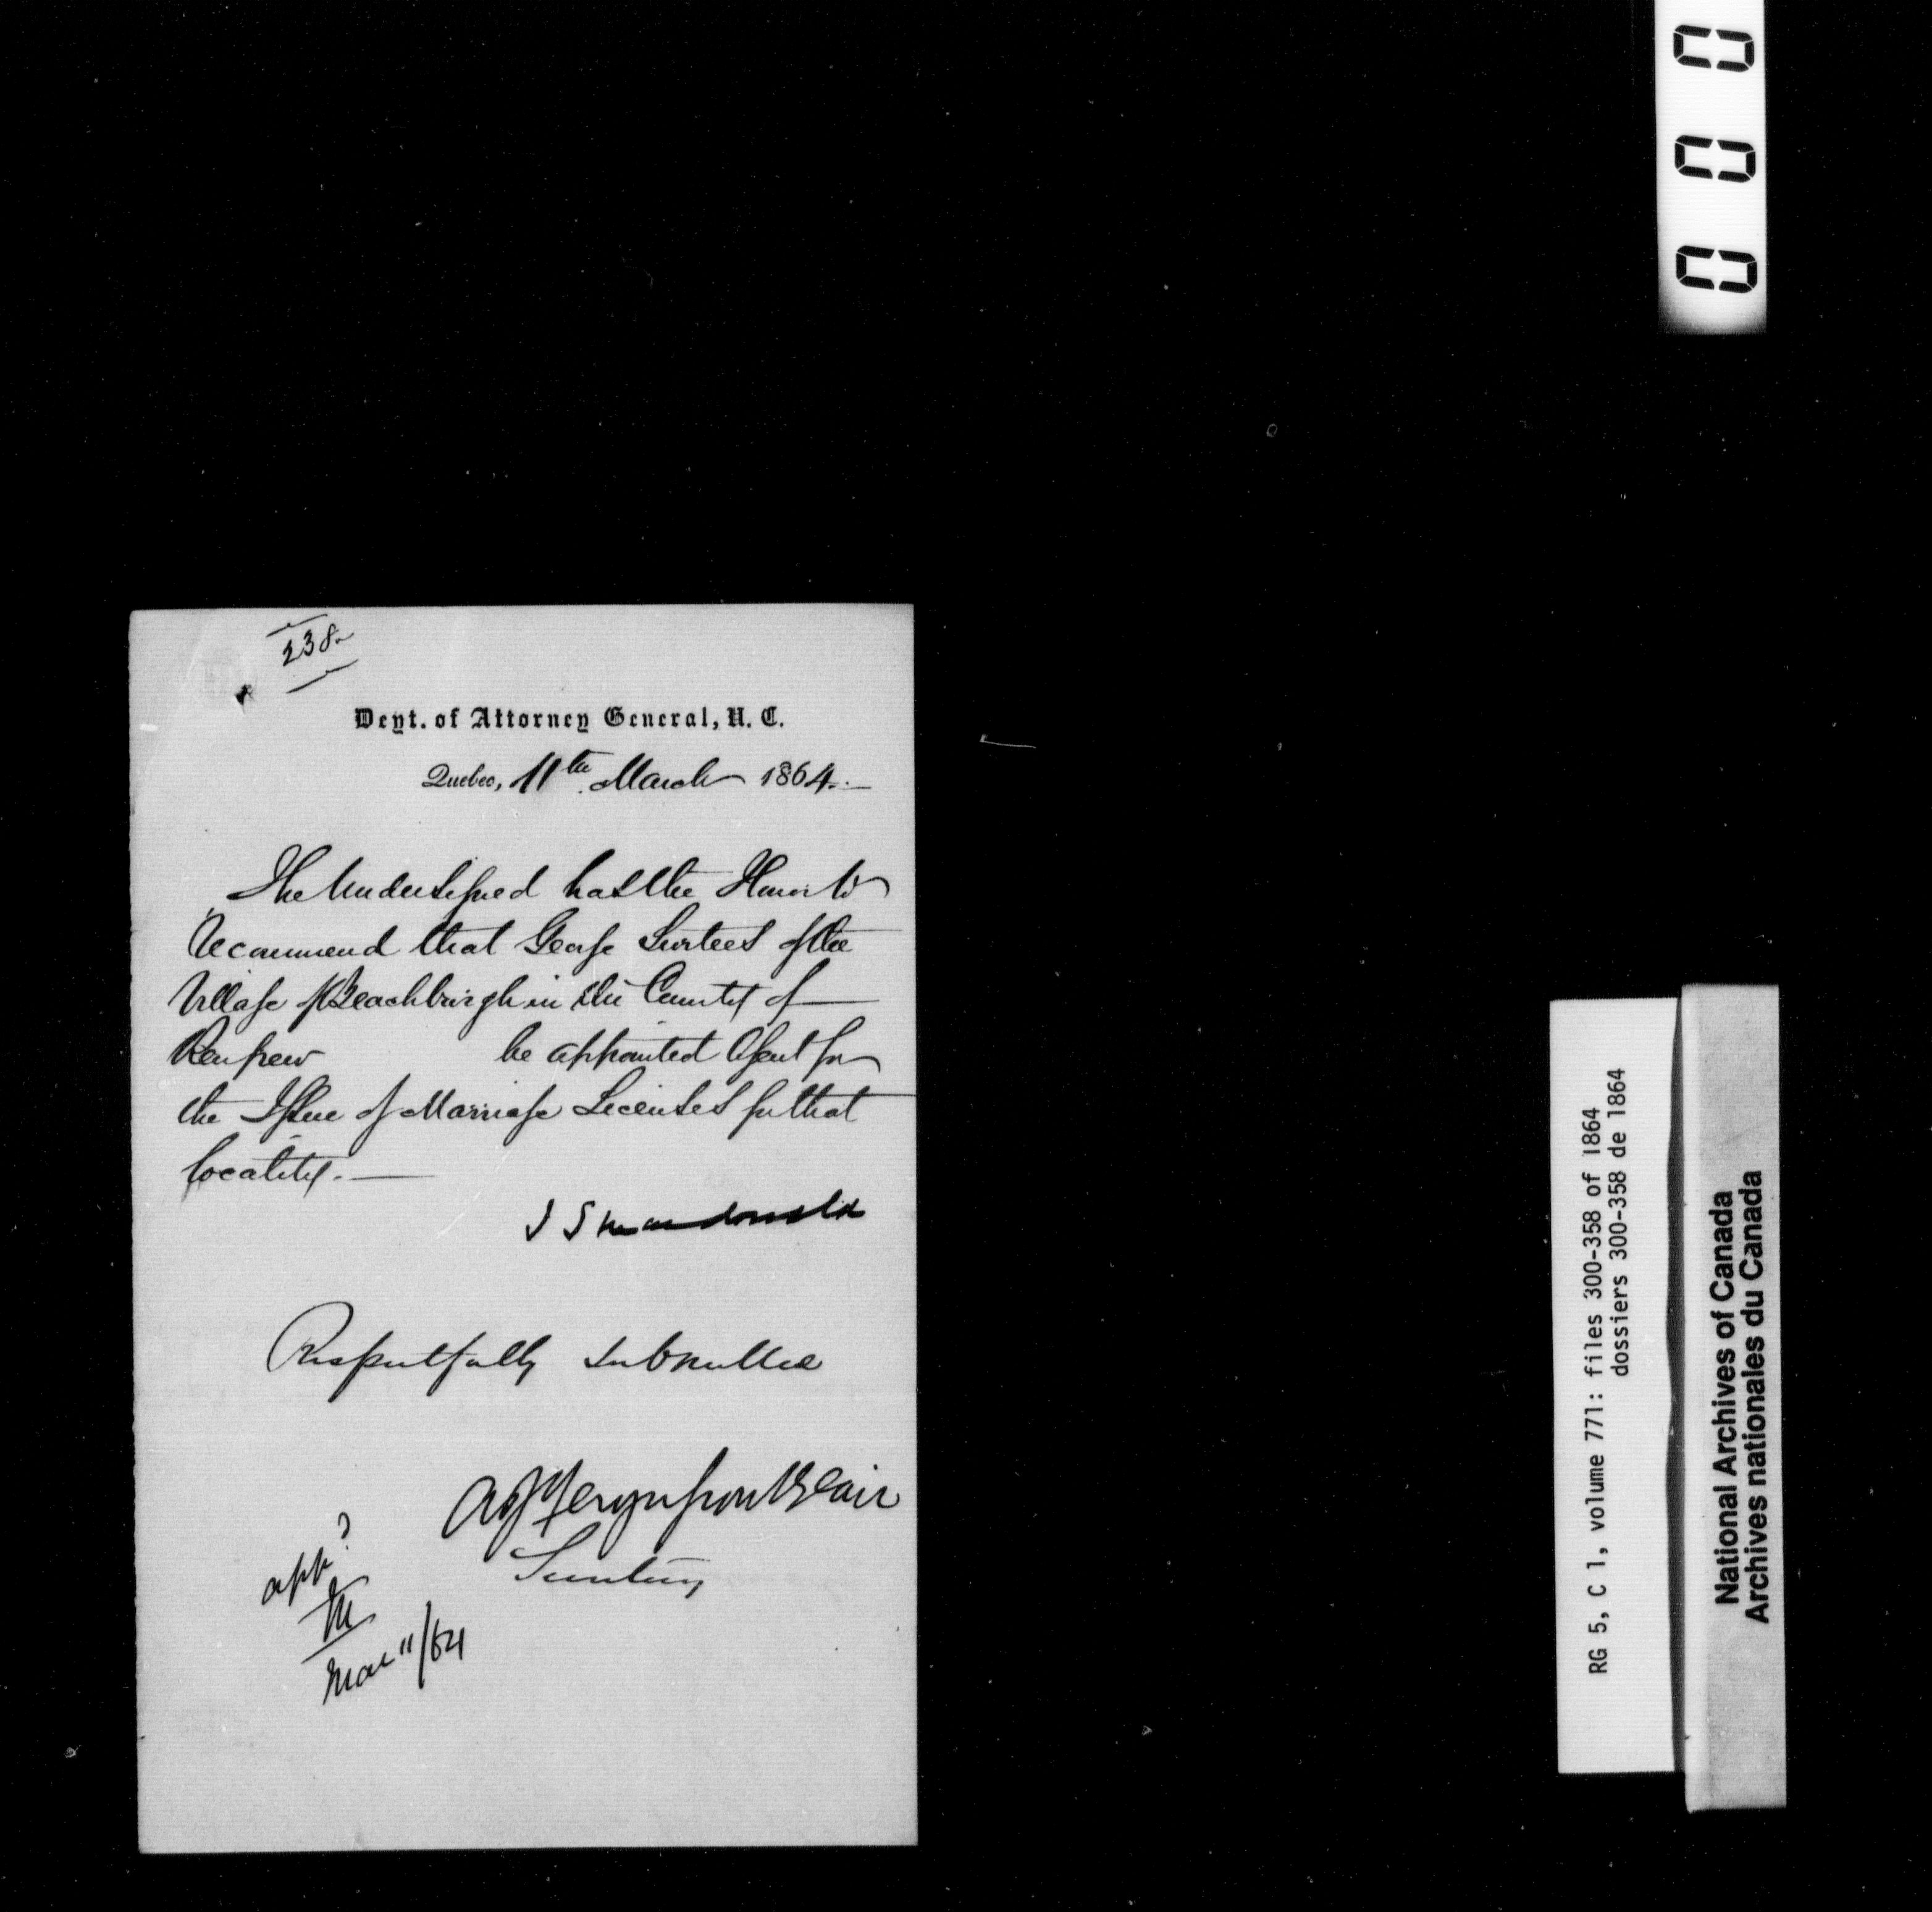 238.
Dept. of Attorney General, U. C.
Quebec, 11th March 1864.
The Undersigned has the Honor to
recommend that George Surtees of the
Village of Beachburgh in the County of
Renfrew be appointed Agent for
the Issue of Marriage Licenses for that
locality.
J S Macdonald
Respectfully submitted
A J Fergusson Blair
Secretary
appd
M
Mar 11/64
000
RG 5, C 1, volume 771: files 300-358 of 1864
dossiers 300-358 de 1864
National Archives of Canada
Archives nationales du Canada